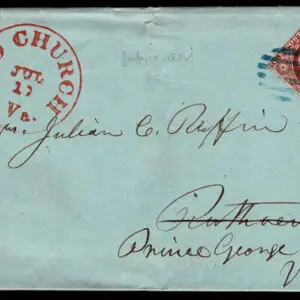 D CHURCH
JUL
17
Va.
Julian C. Ruffin
Ruthven
Prince George
V